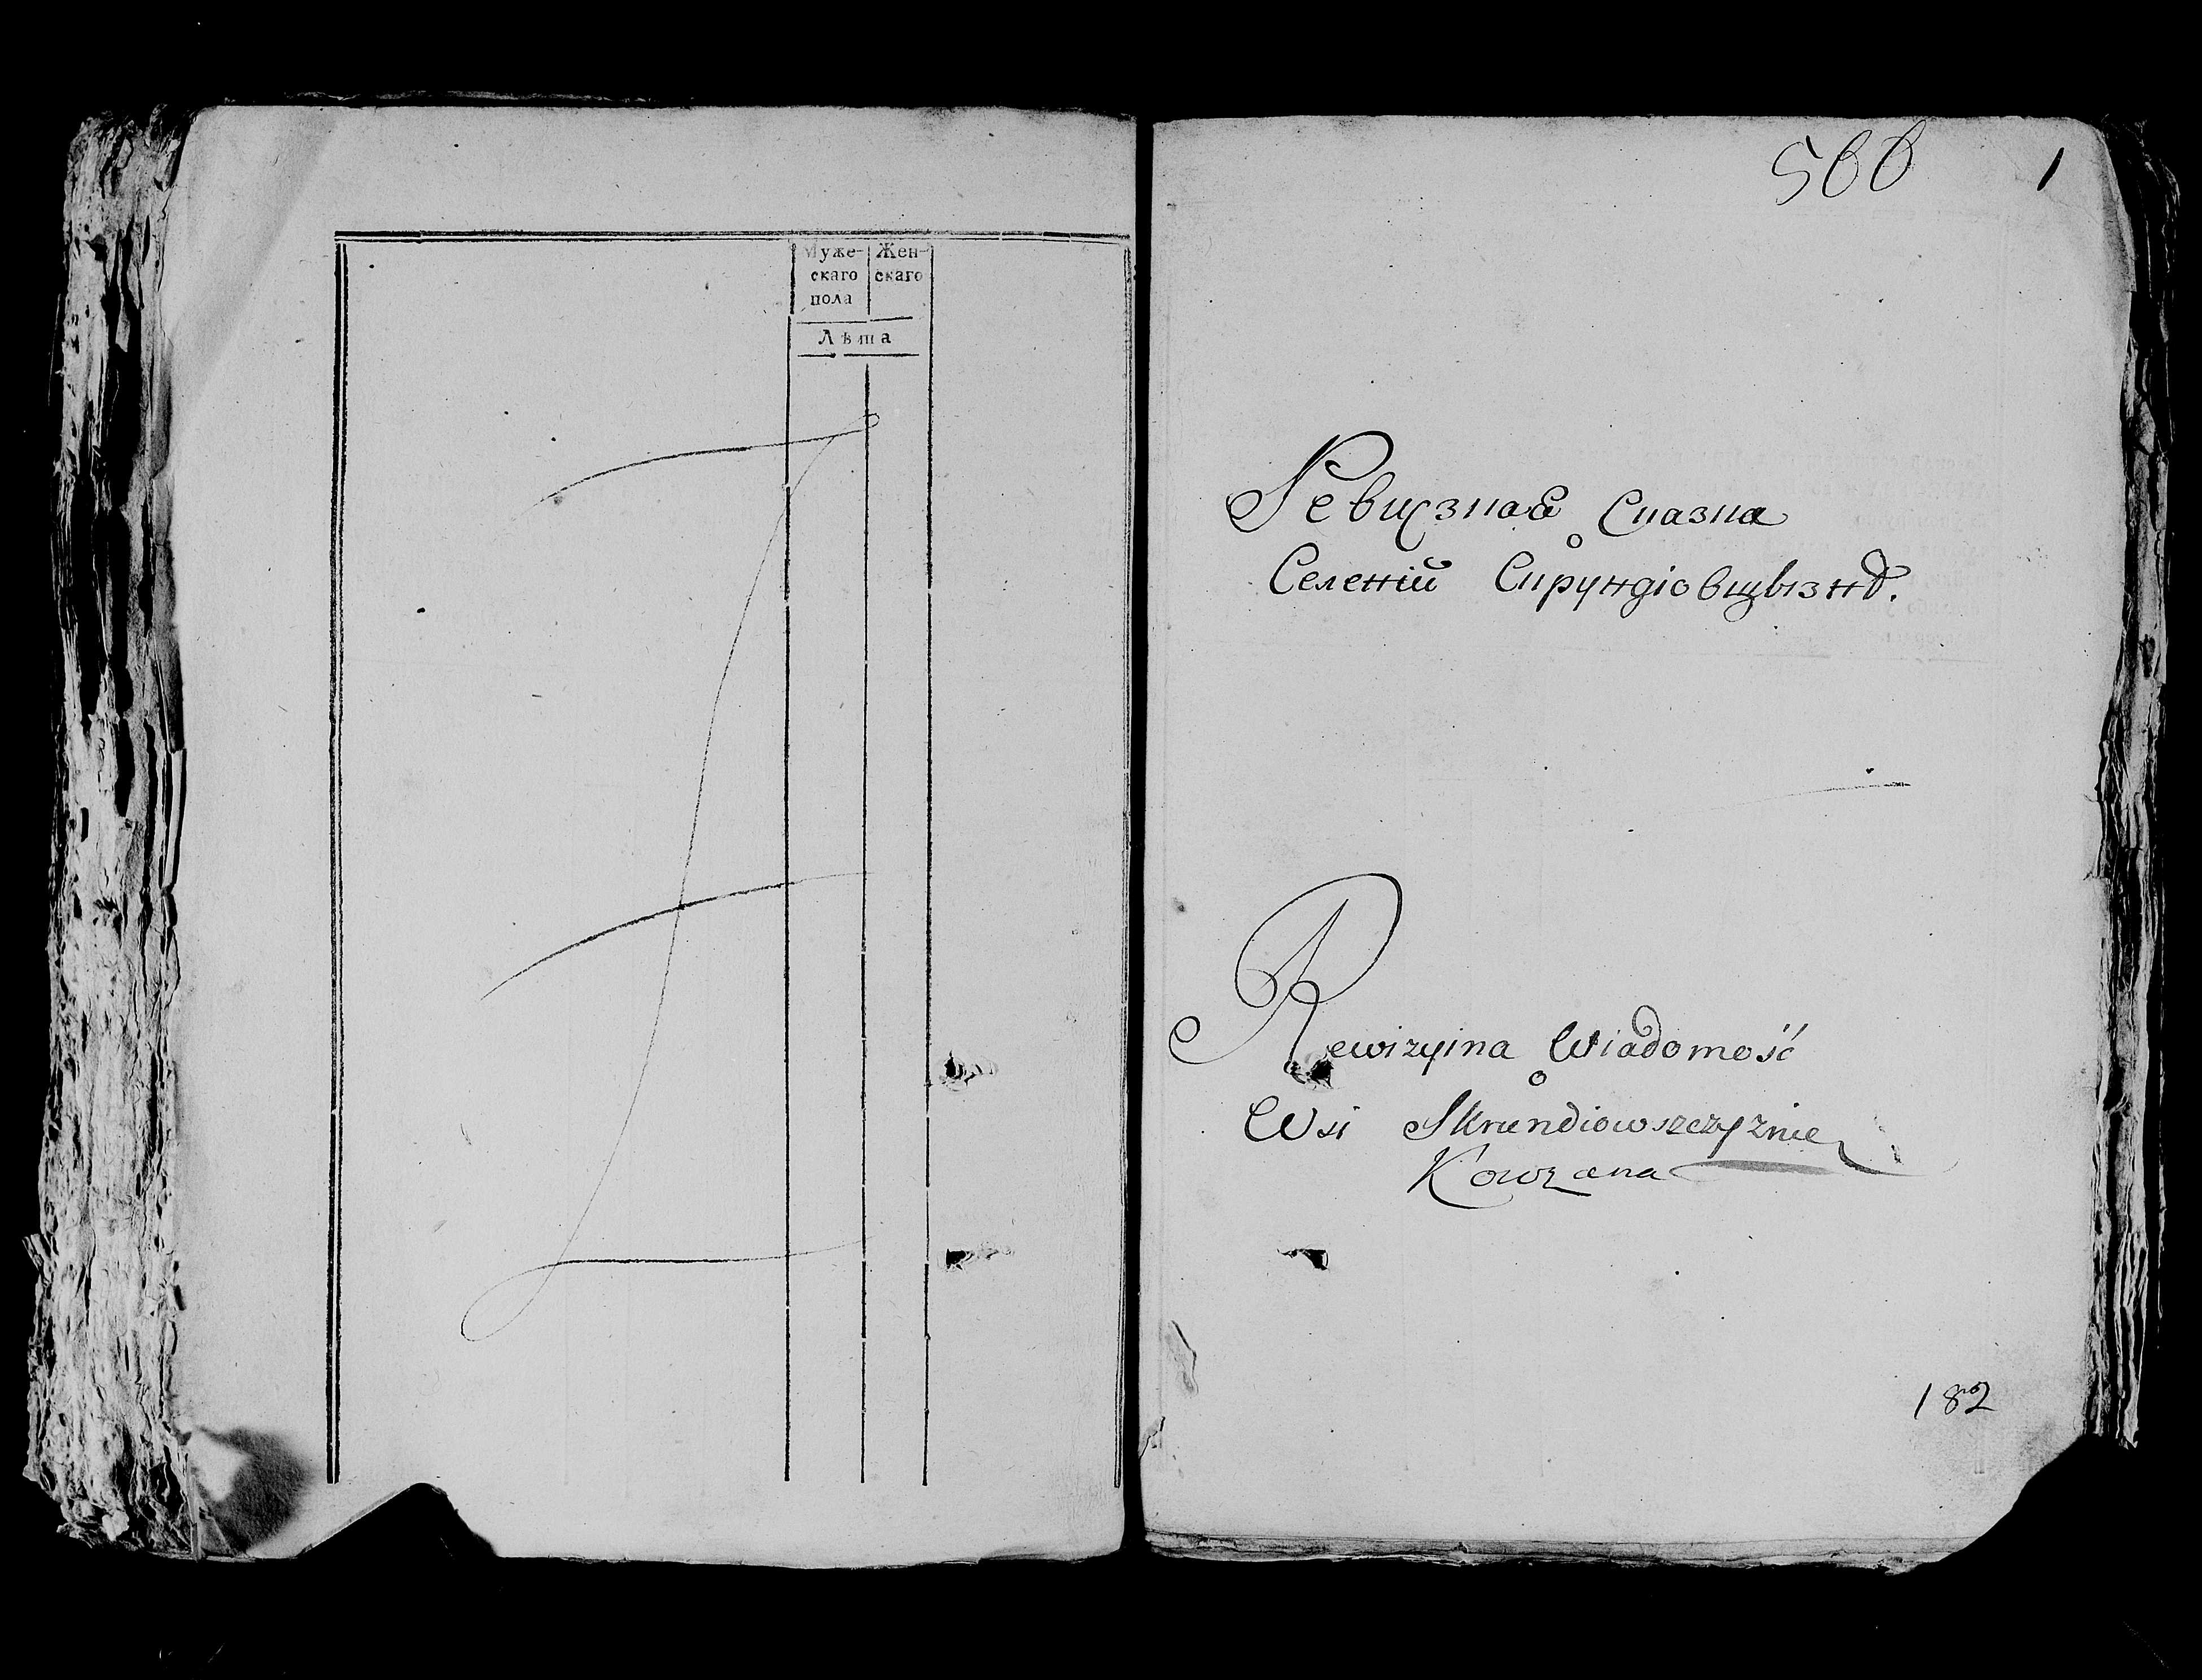 Муже-
скаго
пола
Жен-
скаго
Лѣта
566 1
Ревизная Сказка
о
Селеній Скрундіовщызнѣ.
Rewizyina Wiadomość
o
Wsi Skrundiowszczyznie
Kowzana
182